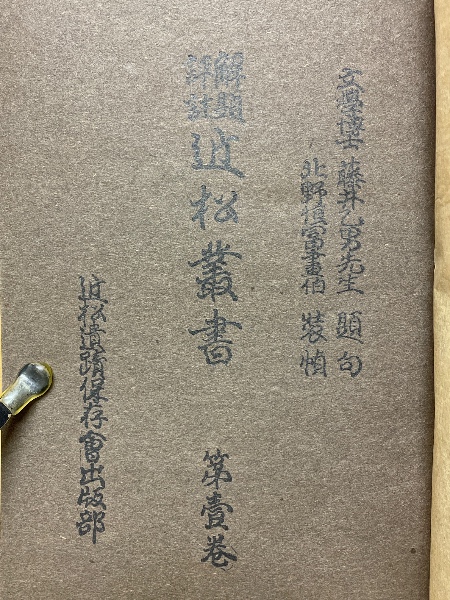 文學博士 藤井乙男先生 題句
北野恒富畫伯 裝幀
解題
評註
近松叢書 第壹卷
近松遺蹟保存會出版部